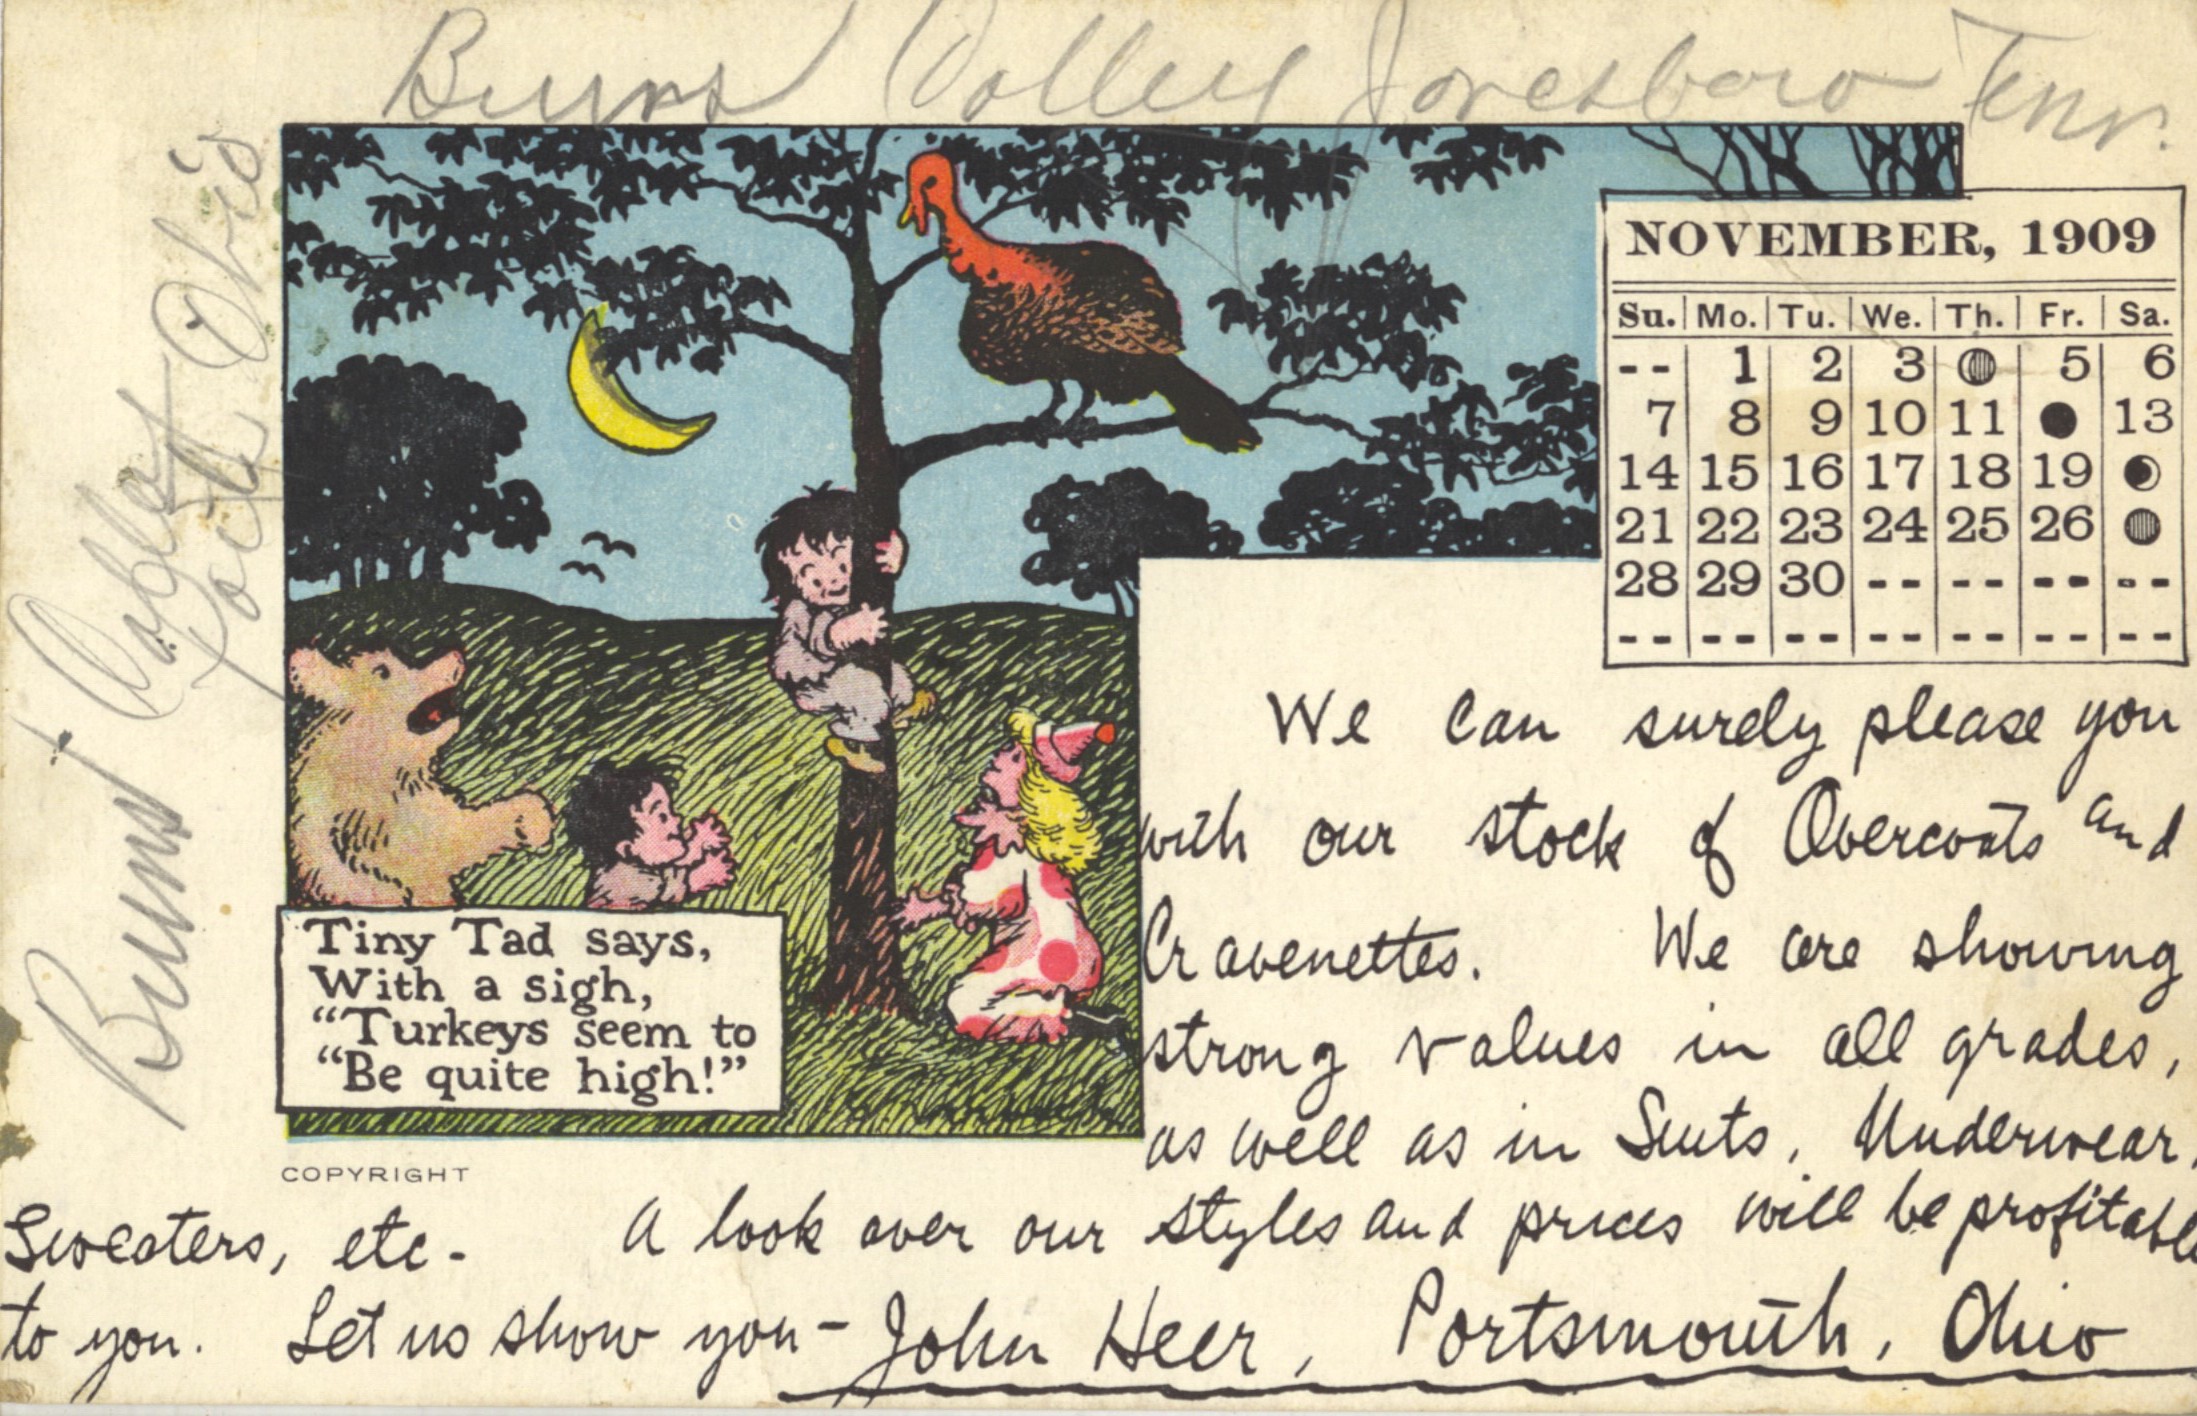 Burns Valley Jonesboro Tenn.
Burns
Ohio
NOVEMBER, 1909
Su. Mo. Tu. We. Th. Fr. Sa.
-- 1 2 3 5 6
7 8 9 10 11 13
14 15 16 17 18 19
21 22 23 24 25 26
28 29 30 -- -- -- --
-- -- -- -- -- -- --
Tiny Tad says,
With a sigh,
"Turkeys seem to
"Be quite high!"
COPYRIGHT
We can surely please you
with our stock of Overcoats and
Cravenettes. We are showing
strong values in all grades,
as well as in Suits, Underwear,
Sweaters, etc- A look over our styles and prices will be profitable
to you. Let us show you - John Heer, Portsmouth, Ohio